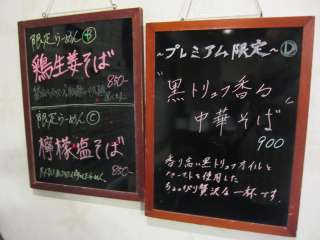 限定らーめん B
鶏生姜そば
850-
限定らーめん C
檸檬・塩そば
850-
〜プレミアム限定〜 D
"黒トリュフ香る
中華そば"
900
香り高い黒トリュフオイルと
ペーストを使用した
ちょっぴり贅沢な一杯です。